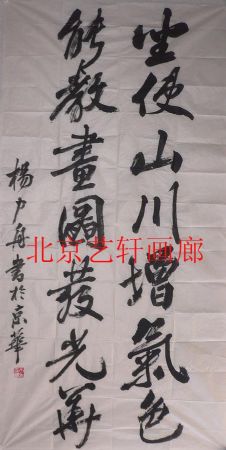 坐使山川增氣色
能教畫圖發光華
楊力舟書於京華
北京艺轩画廊